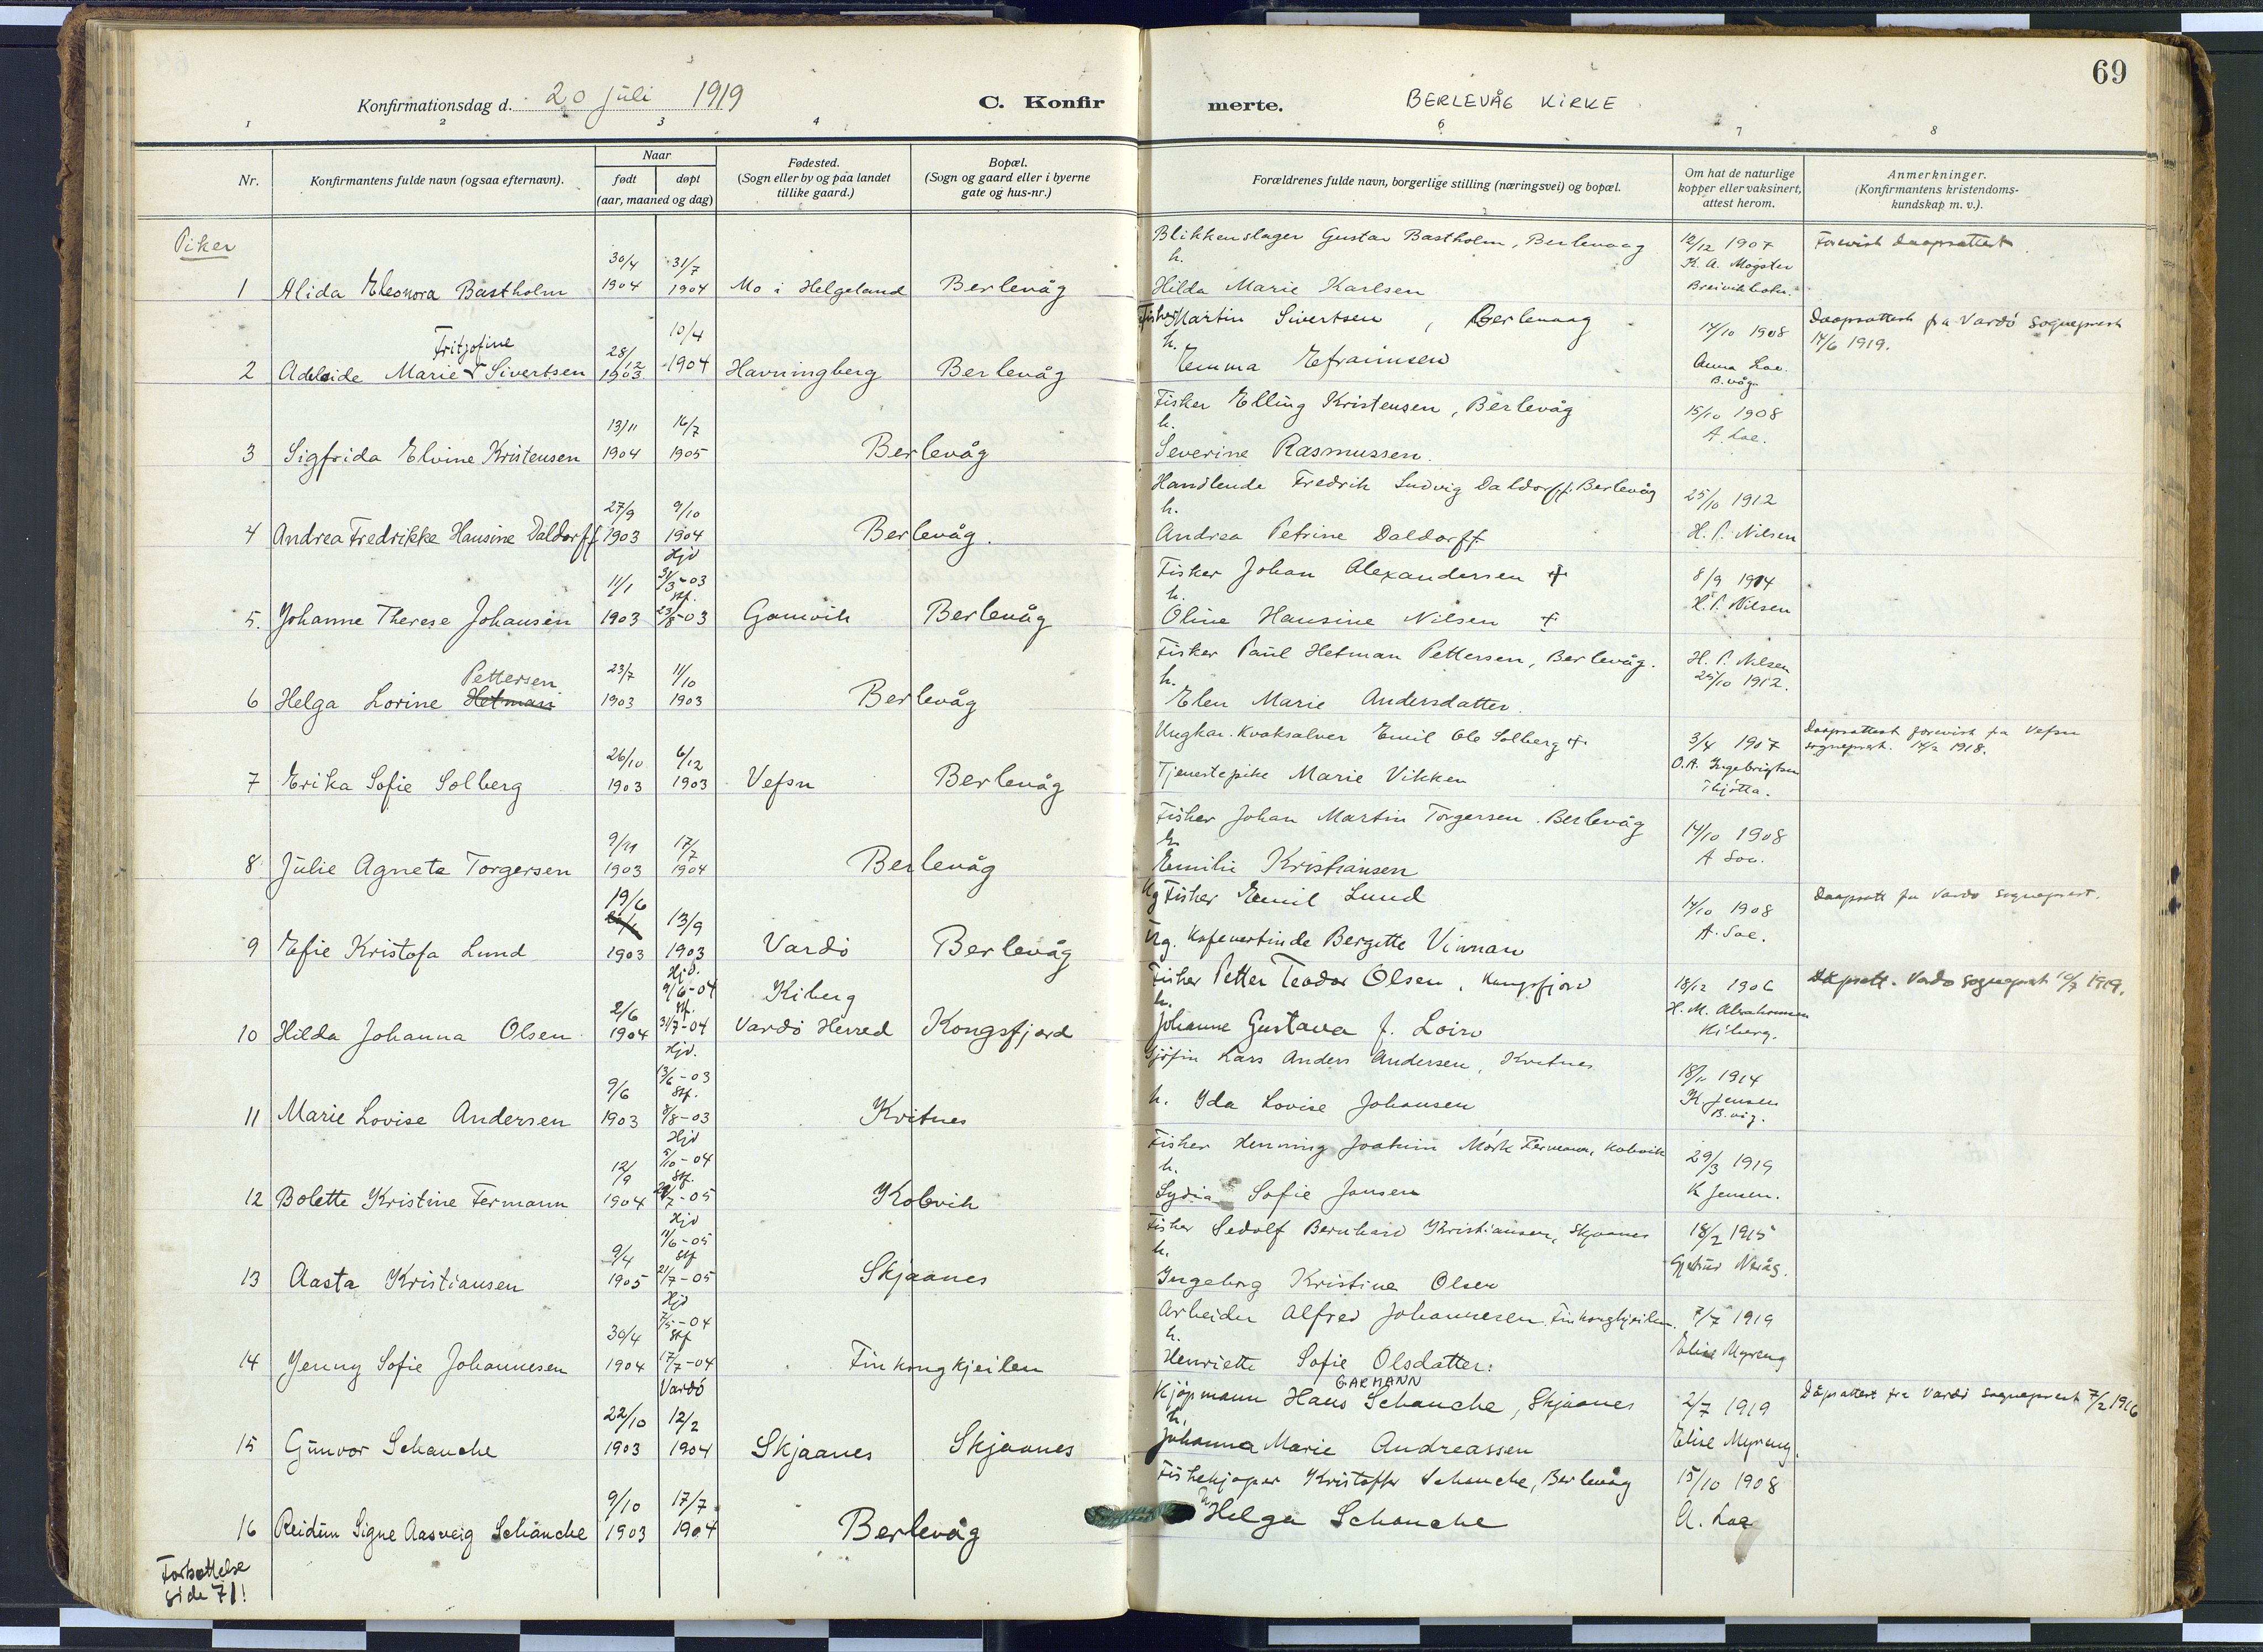 69
Konfirmationsdag d. 20 juli 1919
C. Konfirmerte.
BERLEVÅG KIRKE
1 2 3 4 6 7 8
Nr.
Konfirmantens fulde navn (ogsaa efternavn).
Naar
født
døpt
(aar, maaned og dag)
Fødested.
(Sogn eller by og paa landet
tillike gaard.)
Bopæl.
(Sogn og gaard eller i byerne
gate og hus-nr.)
Forældrenes fulde navn, borgerlige stilling (næringsvei) og bopæl.
Om hat de naturlige
kopper eller vaksinert,
attest herom.
Anmerkninger.
(Konfirmantens kristendoms-
kundskap m. v.).
Piker
1 Alida Eleonora Bastholm 30/4 1904 31/7 1904 Mo i Helgeland Berlevåg
Blikkenslager Gustav Bastholm, Berlevaag
h.
Hilda Marie Karlsen
12/12 1907
K. A. Møgster
Forevist daapsattest
2 Adelside Marie Fritjofine Sivertsen 28/12 1903 10/4 1904 Havningberg Berlevåg
Fisker Martin Sivertsen, Berlevaag
h.
Emma Efraimsen
14/10 1908
Anna Loe.
B.våg.
Daapsattest fra Vardö sogneprest
14/6 1919.
3 Sigfrida Elvine Kristensen 13/11 1904 16/7 1905 Berlevåg
Fisker Elling Kristensen, Berlevåg
h.
Severine Rasmussen.
15/10 1908
A. Loe.
4 Andrea Fredrikke Hansine Daldorff 27/9 1903 9/10 1904 Berlevåg.
Handlende Fredrik Ludvig Daldorff, Berlevåg
h.
Andrea Petrine Daldorff
25/10 1912
H. P. Nilsen
5. Johanne Therese Johansen 11/1 1903 Hjd 31/3-03 stf. 23/8-03 Gamvik Berlevåg
Fisker Johan Alexandersen +
h.
Oline Hansine Nilsen +
8/9 1914
H. P. Nilsen
6 Helga Lorine Hetman Pettersen 23/7 1903 11/10 1903 Berlevåg
Fisker Paul Hetman Pettersen, Berlevåg.
h.
Elen Marie Andersdatter.
H. P. Nilsen
25/10 1912.
7 Erika Sofie Solberg 26/10 1903 6/12 1903 Vefsn Berlevåg
Ungkar. Kvaksalver Emil Ole Solberg +
Tjenestepike Marie Vikken
3/4 1907
O. A. Ingebrigtsen
Thjøtta.
Daapsattest forevist fra Vefsn
sogneprest. 14/2 1918.
8 Julie Agneta Torgersen 9/11 1903 17/7 1904 Berlevåg
Fisker Johan Martin Torgersen. Berlevåg
h.
Emilie Kristiansen
14/10 1908
A Loe.
9 Efie Kristofa Lund 19/6 1903 13/9 1903 Vardö Berlevåg
Ug Fisker Emil Lund
Ug. Kafevertinde Bergitte Vinnan
14/10 1908
A. Loe.
Daapsatt fra Vardö sogneprest.
10 Hilda Johanna Olsen 2/6 1904 Hjd. 9/6-04 stf. 31/7-04 Kiberg Vardö Herred Kongsfjord
Fisker Petter Teodor Olsen, Kongsfjord
h.
Johanne Gustava f. Loiro
18/12 1906
H. M. Abrahamsen
Kiberg.
Dåpsatt. Vardø sogneprest 10/7 1919.
11 Marie Lovise Andersen 9/6 1903 Hjd. 13/6-03 Stf. 8/8-03 Kvitnes
Gjöfin Lars Anders Andersen, Kvitnes
h. Ida Lovise Johansen
18/11 1914
K. Jensen
B.våg.
12 Bolette Kristine Fermann 12/9 1904 Hjd 5/10-04 Stf. Kobvik
Fisker Henning Joakim Mörk Fermann, Kobvik
h.
Lydia Sofie Jansen
29/3 1919
K Jensen.
13 Aasta Kristiansen 9/4 1905 Hjd 11/6-05 Stf 21/7-05 Skjaanes
Fisker Sedolf Bernhard Kristiansen, Skjaanes
h.
Ingeborg Kristine Olsen
18/2 1915
14 Jenny Sofie Johannesen 30/4 1904 Hjd 7/5-04 Stf 17/7-04 Finkongkjeilen
Arbeider Alfred Johannesen Finkongkjeilen.
h.
Henriette Sofie Olsdatter.
7/7 1919
Elise Myreng
15 Gunvor Schanche 22/10 1903 Vardö 12/2 1904 Skjaanes Skjaanes
Kjøpmann Hans GARMANN Schanche, Skjaanes
h.
Johanna Marie Andreassen
2/7 1919
Elise Myreng.
Dåpsattest fra Vardö sogneprest 7/2 1916
16 Reidun Signe Aasveig Schanche 9/10 1903 17/7 1904 Berlevåg
Fiskekjøper Kristoffer Schanche, Berlevåg
h
Helga Schanche
15/10 1908
A. Loe
Fortsettelse
side 71!